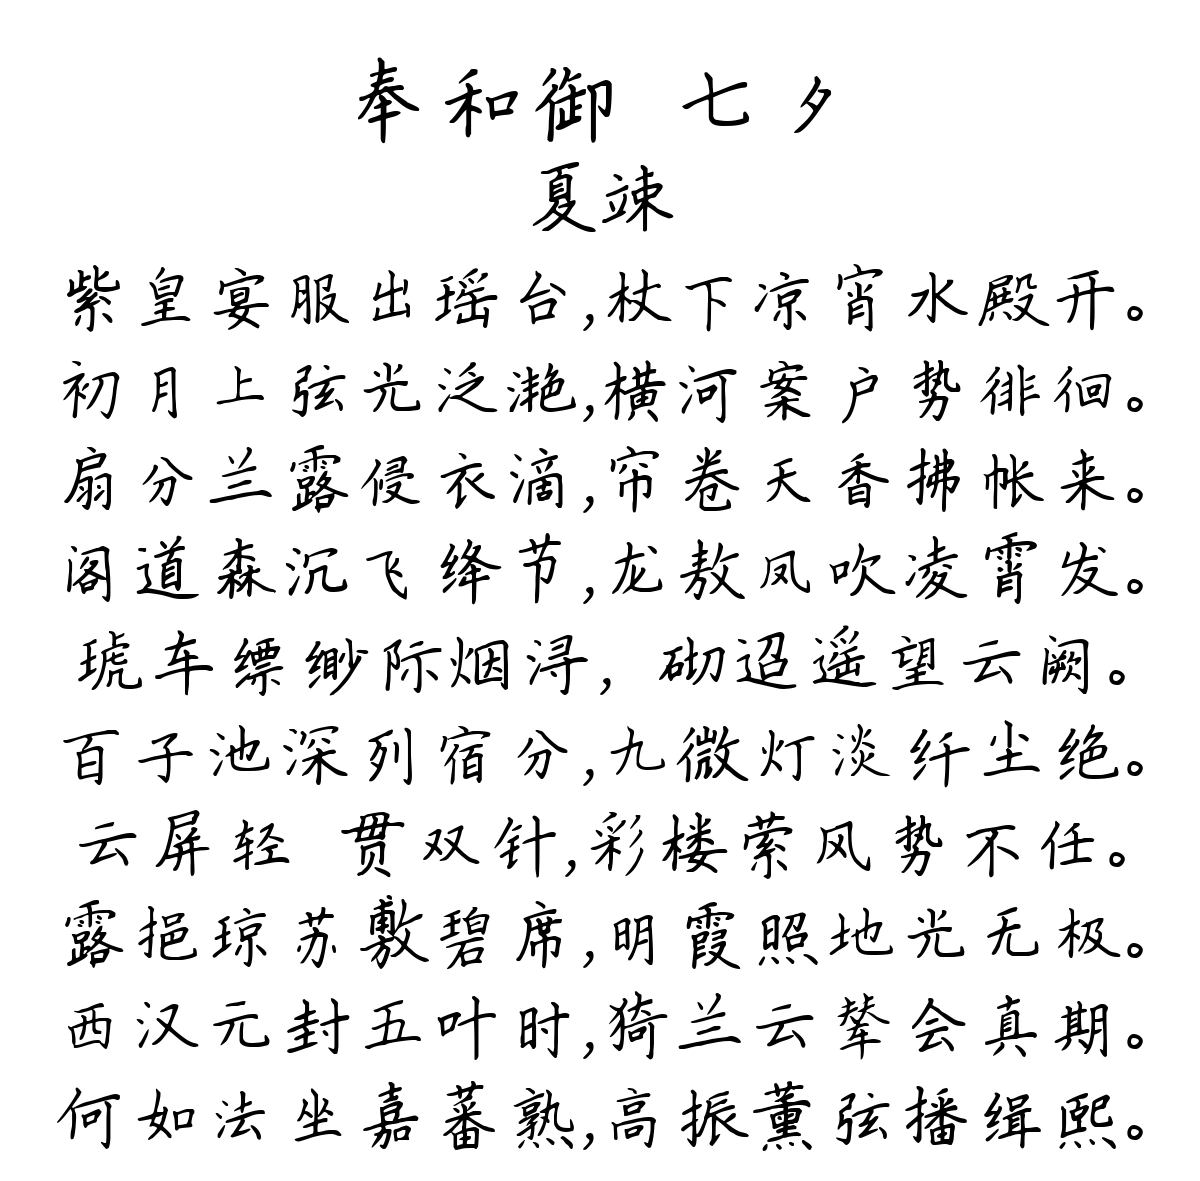 奉和御 七夕
夏竦
紫皇宴服出瑶台,杖下凉宵水殿开。
初月上弦光泛滟,横河案户势徘徊。
扇分兰露侵衣滴,帘卷天香拂帐来。
阁道森沉飞绛节,龙敖凤吹凌霄发。
琥车缥缈际烟浔，砌迢遥望云阙。
百子池深列宿分,九微灯淡纤尘绝。
云屏轻 贯双针,彩楼萦风势不任。
露挹琼苏敷碧席,明霞照地光无极。
西汉元封五叶时,猗兰云辇会真期。
何如法坐嘉蕃熟,高振薰弦播缉熙。